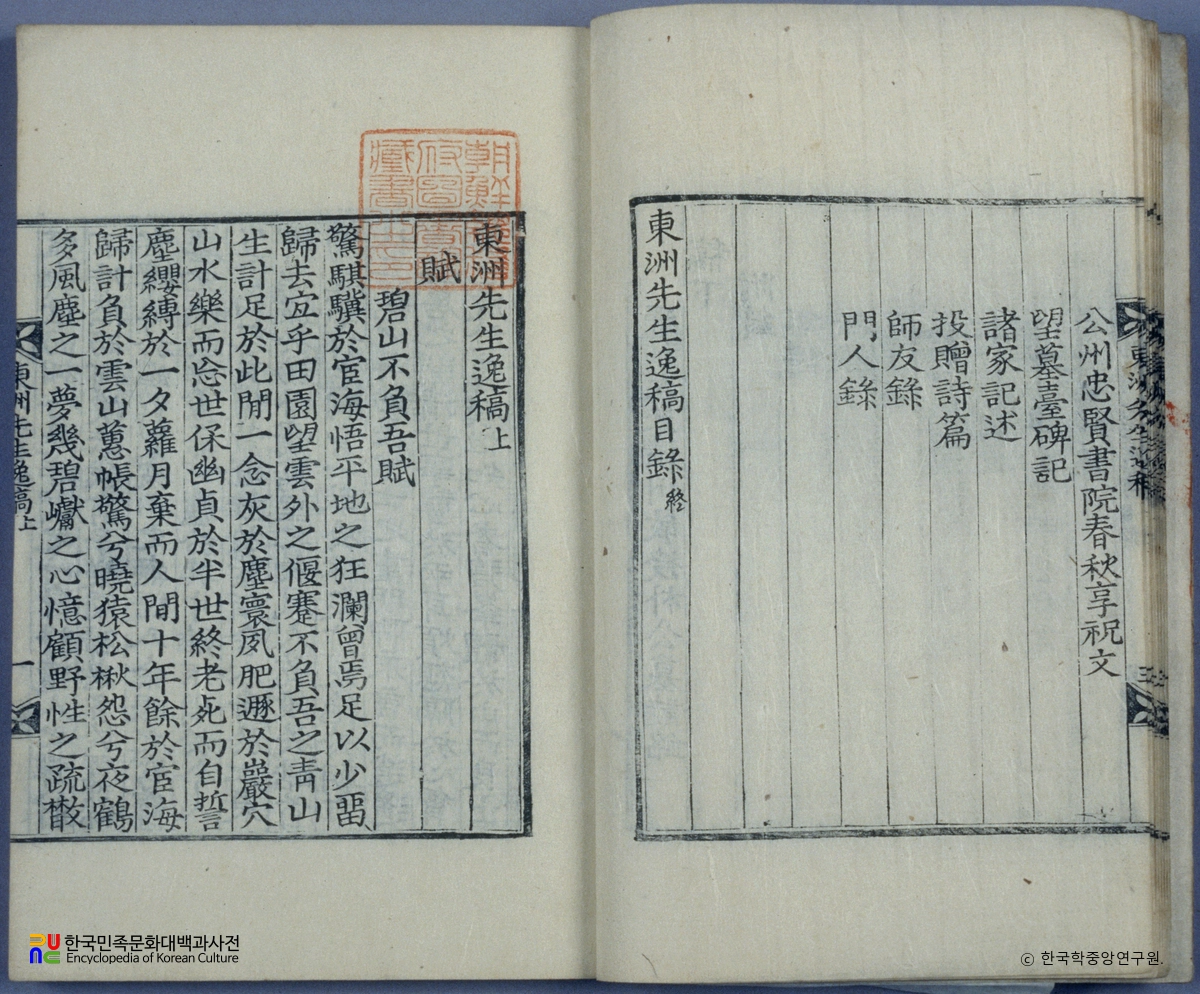 公州忠賢書院春秋享祝文
望墓臺碑記
諸家記述
投贈詩篇
師友錄
門人錄
東洲先生逸稿目錄終
東洲先生逸稿上
賦
碧山不負吾賦
驚騏驥於宦海悟平地之狂瀾曾焉足以少留
歸去宜乎田園望雲外之偃蹇不負吾之靑山
生計足於此閒一念灰於塵寰夙肥遯於巖穴
山水樂而忘世保幽貞於半世終老死而自誓
塵纓縛於一夕蘿月棄而人間十年餘於宦海
歸計負於雲山蕙帳驚兮曉猿松楸怨兮夜鶴
多風塵之一夢幾碧巘之心憶顧野性之疏散
東洲先生逸稿上
一
朝鮮總督府圖書館藏書之印
한국민족문화대백과사전
Encyclopedia of Korean Culture
ⓒ 한국학중앙연구원.